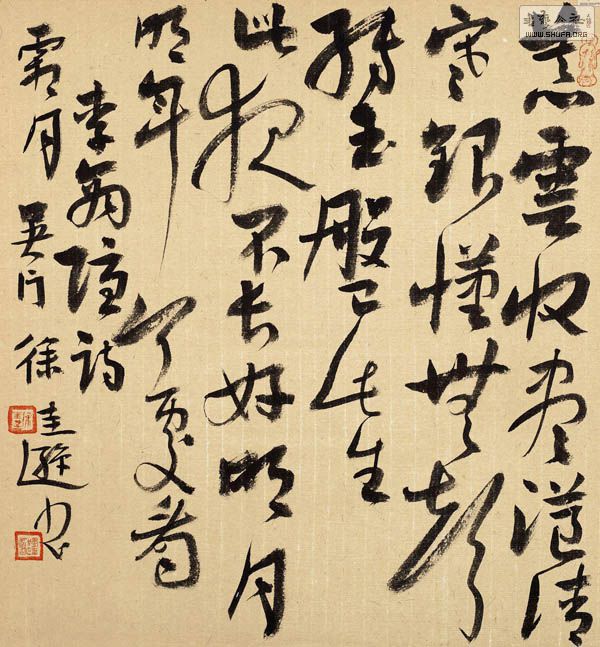 暮雲收盡溢清
寒銀漢無聲
轉玉盤此生
此夜不長好明月
明年何處看
李商隱詩
霜月吳门徐圭遜
WWW.SHUFA.ORG